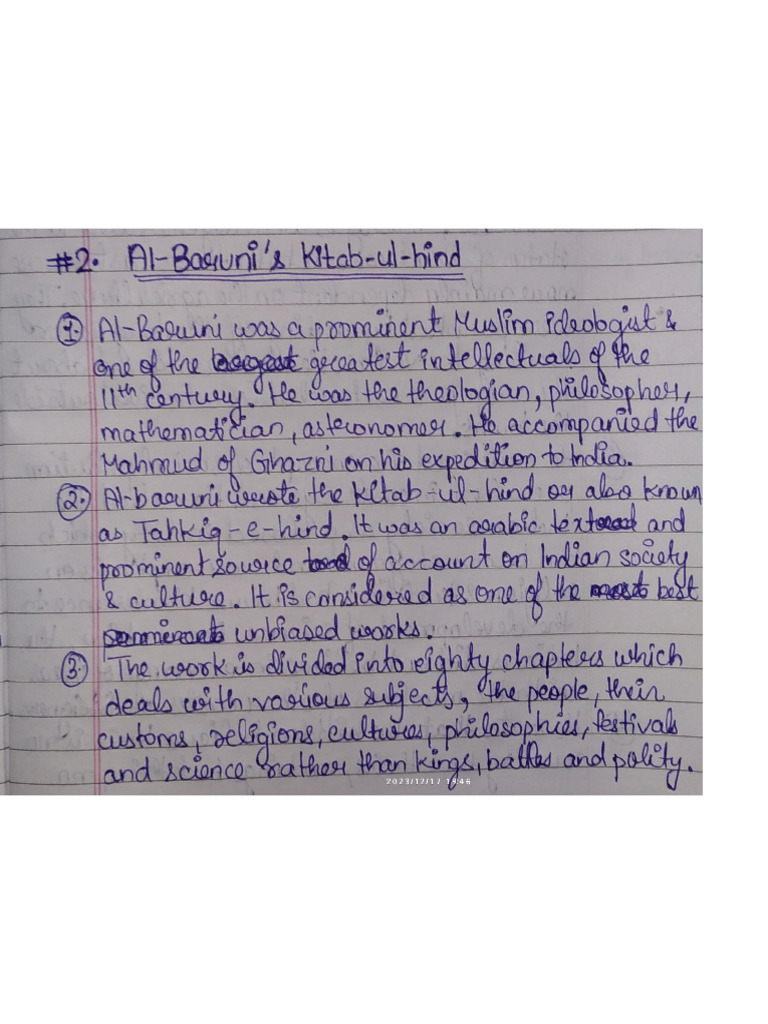 #2. Al-Baruni's Kitab-ul-hind
1. Al-Baruni was a prominent Muslim ideologist &
one of the largest greatest intellectuals of the
11th century. He was the theologian, philosopher,
mathematician, astronomer. He accompanied the
Mahmud of Ghazni on his expedition to India.
2. Al-baruni wrote the kitab-ul-hind or also known
as Tahkiq-e-hind. It was an arabic text and
prominent source of account on Indian society
& culture. It is considered as one of the most best
unbiased works.
3. The work is divided into eighty chapters which
deals with various subjects, the people, their
customs, religions, cultures, philosophies, festivals
and science rather than kings, battles and polity.
2023/12/17 19:46